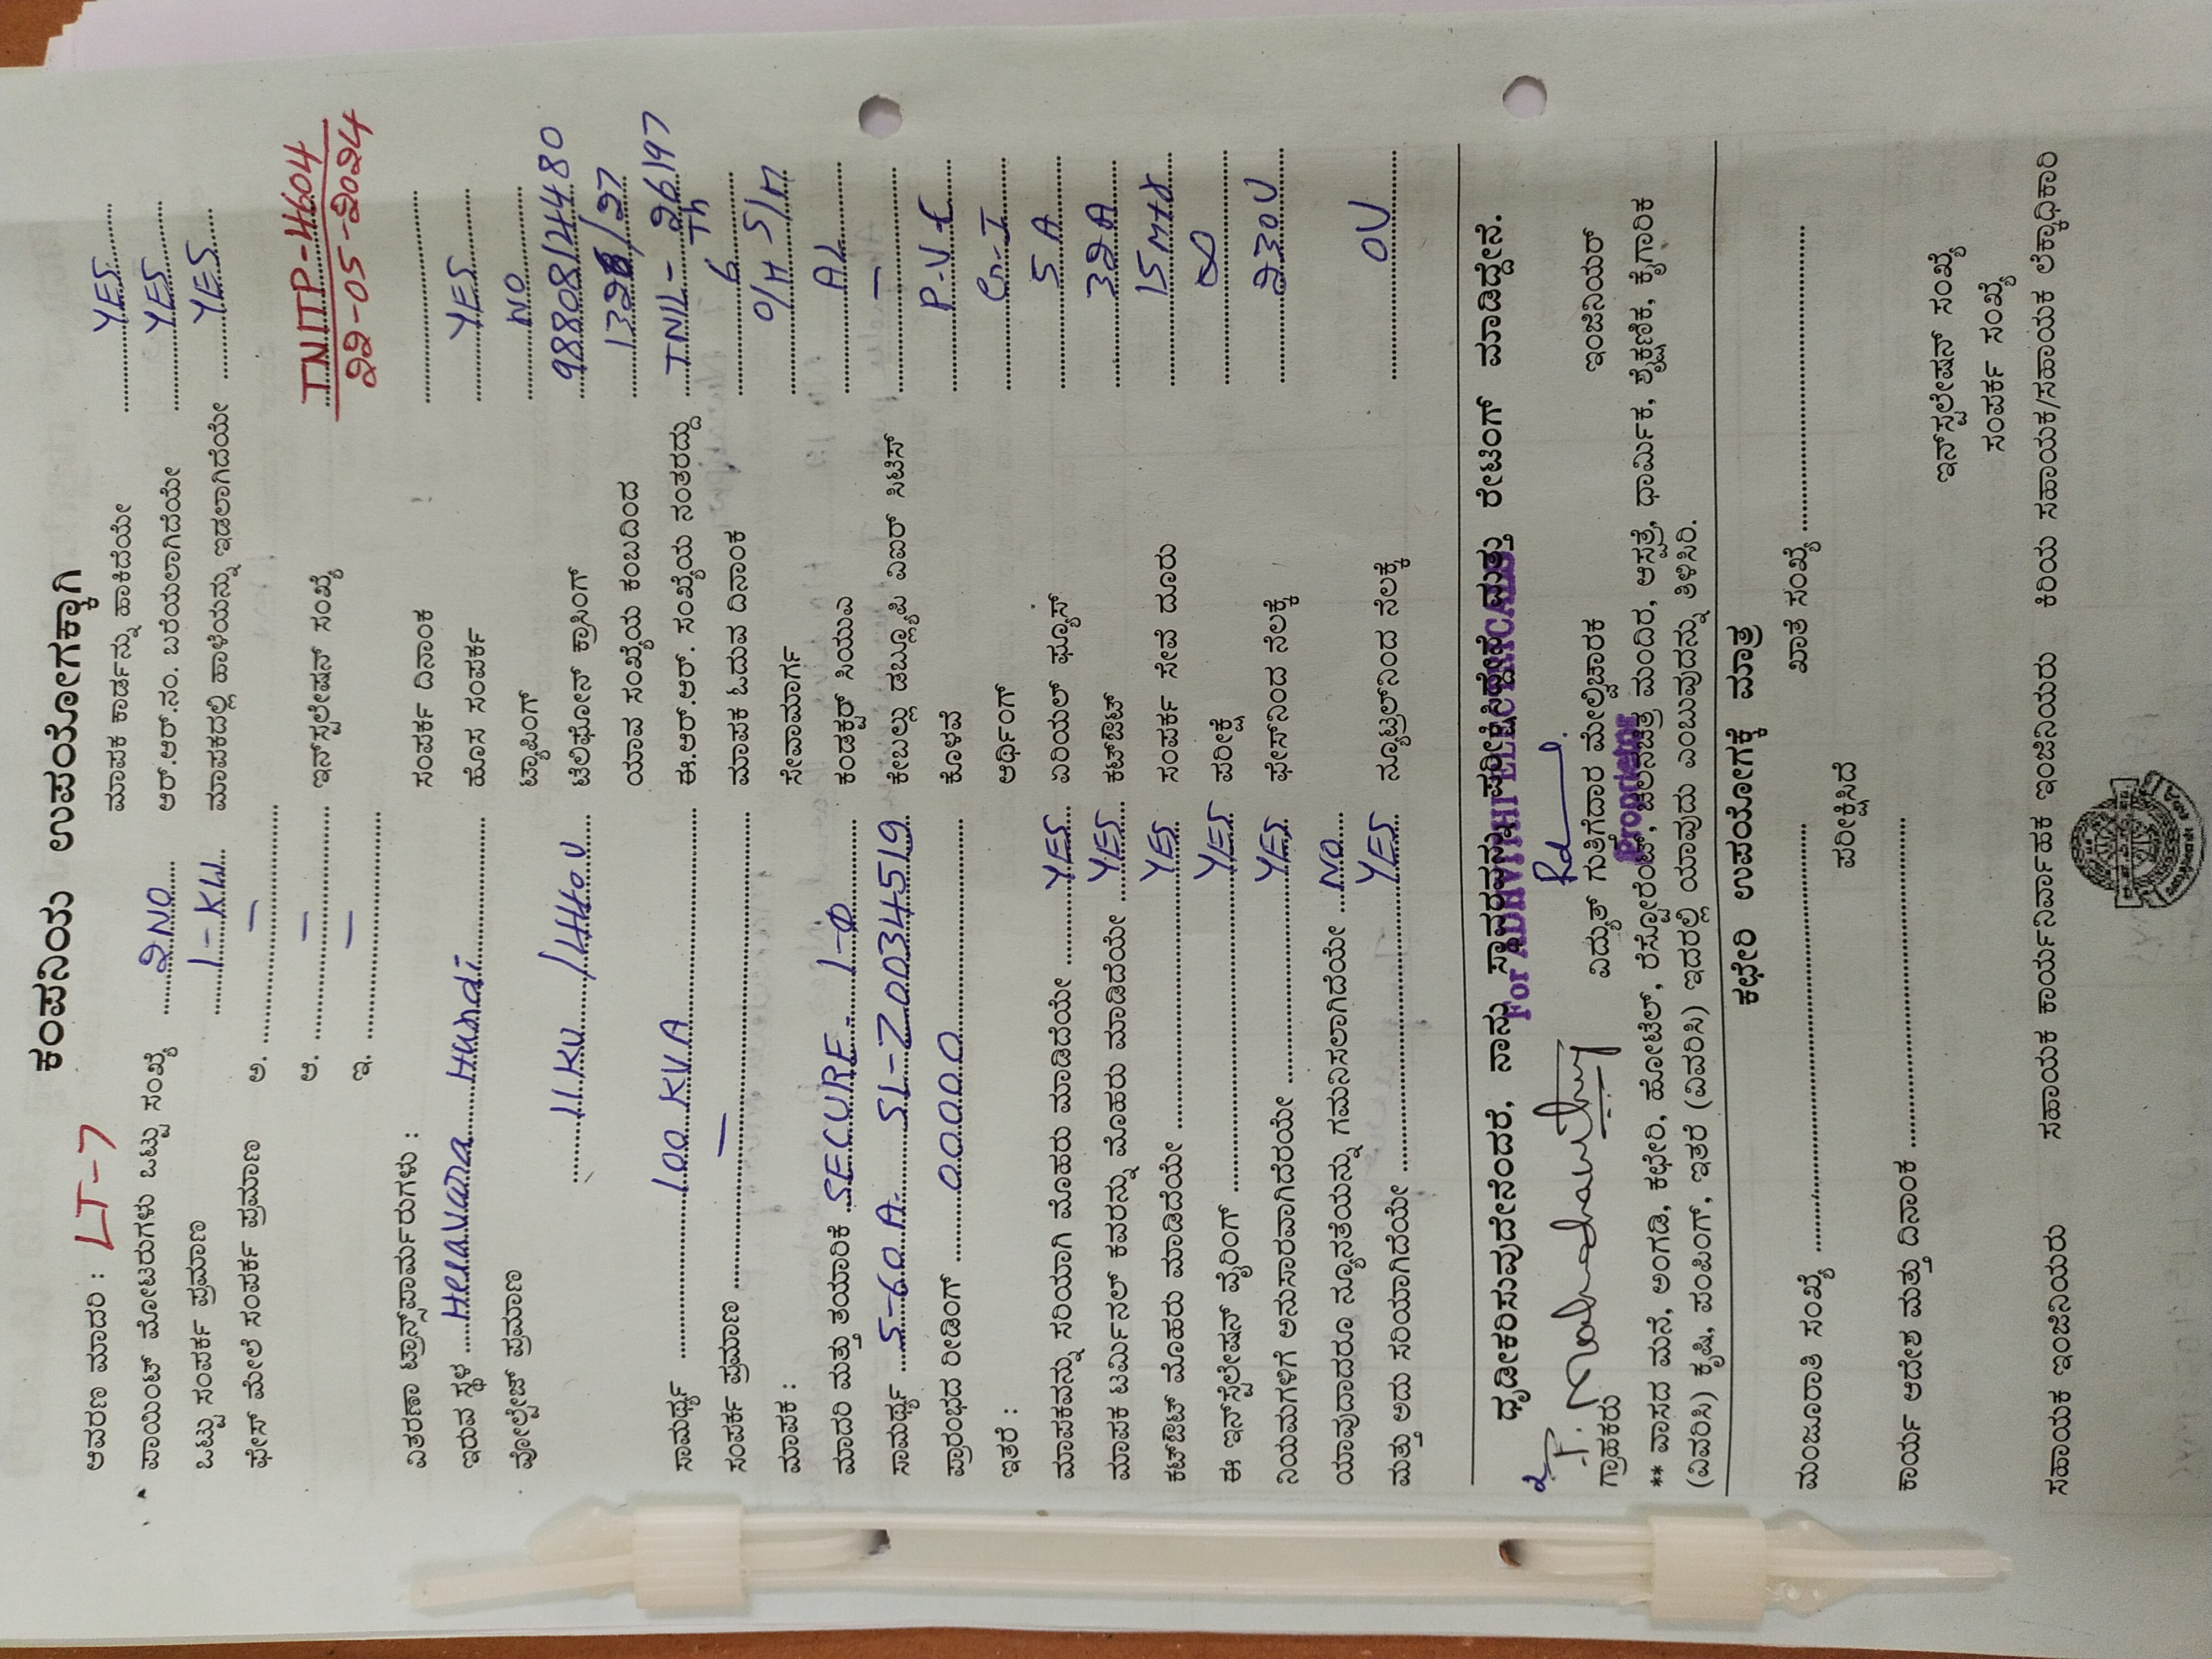 ಕಂಪನಿಯ ಉಪಯೋಗಕ್ಕಾಗಿ
ಆವರಣ ಮಾದರಿ : LT-7
ಮಾಪಕ ಕಾರ್ಡನ್ನು ಹಾಕಿದೆಯೇ YES
ಪಾಯಿಂಟ್ ಮೋಟರುಗಳು ಒಟ್ಟು ಸಂಖ್ಯೆ 2NO
ಆರ್.ಆರ್.ನಂ. ಬರೆಯಲಾಗಿದೆಯೇ YES
ಒಟ್ಟು ಸಂಪರ್ಕ ಪ್ರಮಾಣ 1-KW
ಮಾಪಕದಲ್ಲಿ ಹಾಳೆಯನ್ನು ಇಡಲಾಗಿದೆಯೇ YES
ಫೇಸ್ ಮೇಲೆ ಸಂಪರ್ಕ ಪ್ರಮಾಣ ಅ. —
ಆ. —
ಇನ್‌ಸ್ಟಲೇಷನ್ ಸಂಖ್ಯೆ TNITP-4604
ಇ. —
22-05-2024
ವಿತರಣಾ ಟ್ರಾನ್ಸ್‌ಫಾರ್ಮರುಗಳು :
ಸಂಪರ್ಕ ದಿನಾಂಕ
ಇರುವ ಸ್ಥಳ Helavara Hundi
ಹೊಸ ಸಂಪರ್ಕ YES
ವೋಲ್ಟೇಜ್ ಪ್ರಮಾಣ
ಟ್ಯಾಪಿಂಗ್ NO
11KV /440V
ಟೆಲಿಫೋನ್ ಕ್ರಾಸಿಂಗ್ 98808124480
ಯಾವ ಸಂಖ್ಯೆಯ ಕಂಬದಿಂದ
ಸಾಮರ್ಥ್ಯ 100 KVA
ಈ.ಆರ್.ಆರ್. ಸಂಖ್ಯೆಯ ನಂತರದ್ದು TNIL-26197
ಸಂಪರ್ಕ ಪ್ರಮಾಣ —
ಮಾಪಕ ಓದುವ ದಿನಾಂಕ 6Th
ಮಾಪಕ :
ಸೇವಾಮಾರ್ಗ O/H-S/M
ಮಾದರಿ ಮತ್ತು ತಯಾರಿಕೆ SECURE 1-Φ
ಕಂಡಕ್ಟರ್ ಸಿಯುಎ AL
ಸಾಮರ್ಥ್ಯ 5-60A. SL-Z0034519
ಕೇಬಲ್ಲು ಡಬ್ಲ್ಯೂಪಿ ಎಐರ್ ಸಿಟಿಸ್ —
ಪ್ರಾರಂಭದ ರೀಡಿಂಗ್ 00000
ಕೊಳವೆ P.V.C
ಇತರೆ :
ಆರ್ಥಿಂಗ್ G.I
ಮಾಪಕವನ್ನು ಸರಿಯಾಗಿ ಮೊಹರು ಮಾಡಿದೆಯೇ YES
ಏರಿಯಲ್ ಫ್ಯೂಸ್ 5 A
ಮಾಪಕ ಟರ್ಮಿನಲ್ ಕವರನ್ನು ಮೊಹರು ಮಾಡಿದೆಯೇ YES
ಕಟ್‌ಔಟ್ 32A
ಕಟ್‌ಔಟ್ ಮೊಹರು ಮಾಡಿದೆಯೇ YES
ಸಂಪರ್ಕ ಸೇವೆ ದೂರು 15 Mtr
ಈ ಇನ್‌ಸ್ಟಲೇಷನ್ ವೈರಿಂಗ್ YES
ಪರೀಕ್ಷೆ ∞
ನಿಯಮಗಳಿಗೆ ಅನುಸಾರವಾಗಿದೆಯೇ YES
ಫೇಸ್‌ನಿಂದ ನೆಲಕ್ಕೆ 230V
ಯಾವುದಾದರೂ ನ್ಯೂನತೆಯನ್ನು ಗಮನಿಸಲಾಗಿದೆಯೇ NO
ಮತ್ತು ಅದು ಸರಿಯಾಗಿದೆಯೇ YES
ನ್ಯೂಟ್ರಲ್‌ನಿಂದ ನೆಲಕ್ಕೆ 0V
ದೃಢೀಕರಿಸುವುದೇನೆಂದರೆ, ನಾನು ಸ್ಥಾವರವನ್ನು ಪರೀಕ್ಷಿಸಿದ್ದೇನೆ ಮತ್ತು ರೇಟಿಂಗ್ ಮಾಡಿದ್ದೇನೆ.
ಗ್ರಾಹಕರು ವಿದ್ಯುತ್ ಗುತ್ತಿಗೆದಾರ ಮೇಲ್ವಿಚಾರಕ ಇಂಜಿನಿಯರ್
Proprietor
** ವಾಸದ ಮನೆ, ಅಂಗಡಿ, ಕಛೇರಿ, ಹೋಟೆಲ್, ರೆಸ್ಟೋರೆಂಟ್, ಚಲನಚಿತ್ರ ಮಂದಿರ, ಆಸ್ಪತ್ರೆ, ಧಾರ್ಮಿಕ, ಶೈಕ್ಷಣಿಕ, ಕೈಗಾರಿಕ
(ವಿವರಿಸಿ) ಕೃಷಿ, ಪಂಪಿಂಗ್, ಇತರೆ (ವಿವರಿಸಿ) ಇದರಲ್ಲಿ ಯಾವುದು ಎಂಬುವುದನ್ನು ತಿಳಿಸಿರಿ.
ಕಛೇರಿ ಉಪಯೋಗಕ್ಕೆ ಮಾತ್ರ
ಮಂಜೂರಾತಿ ಸಂಖ್ಯೆ ಖಾತೆ ಸಂಖ್ಯೆ
ಪರೀಕ್ಷಿಸಿದೆ
ಕಾರ್ಯ ಆದೇಶ ಮತ್ತು ದಿನಾಂಕ
ಇನ್‌ಸ್ಟಲೇಷನ್ ಸಂಖ್ಯೆ
ಸಂಪರ್ಕ ಸಂಖ್ಯೆ
ಸಹಾಯಕ ಇಂಜಿನಿಯರು ಸಹಾಯಕ ಕಾರ್ಯನಿರ್ವಾಹಕ ಇಂಜಿನಿಯರು ಕಿರಿಯ ಸಹಾಯಕ/ಸಹಾಯಕ ಲೆಕ್ಕಾಧಿಕಾರಿ